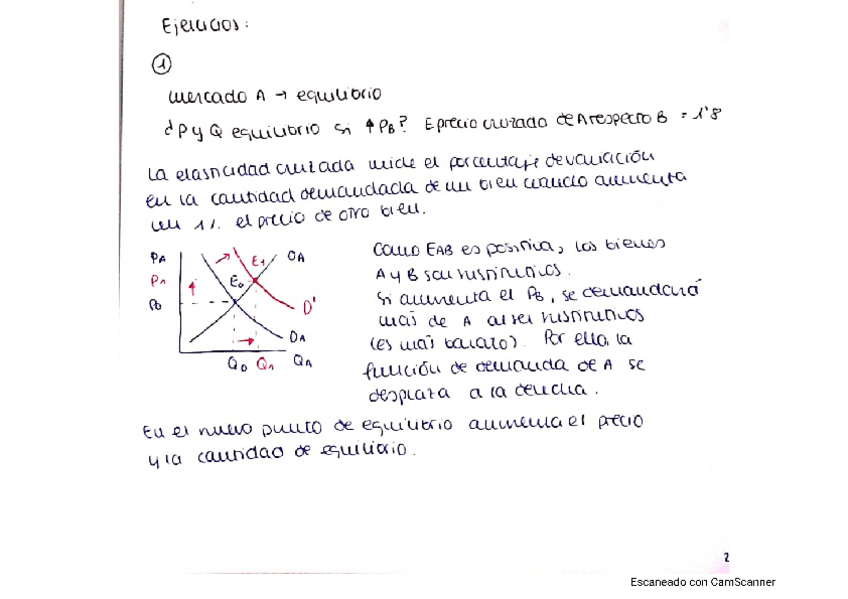 Ejercicios:
1
mercado A → equilibrio
¿P y Q equilibrio si ↑ PB? E precio cruzado de A respecto B = 1'8
La elasticidad cruzada mide el porcentaje de variación
en la cantidad demandada de un bien cuando aumenta
un 1% el precio de otro bien.
PA
P1
P0
E0
E1
OA
D'
DA
Q0 Q1 QA
Como EAB es positiva, los bienes
A y B son sustitutivos.
Si aumenta el PB, se demandará
más de A al ser sustitutivos
(es más barato). Por ello, la
función de demanda de A se
desplaza a la derecha.
En el nuevo punto de equilibrio aumenta el precio
y la cantidad de equilibrio.
2
Escaneado con CamScanner